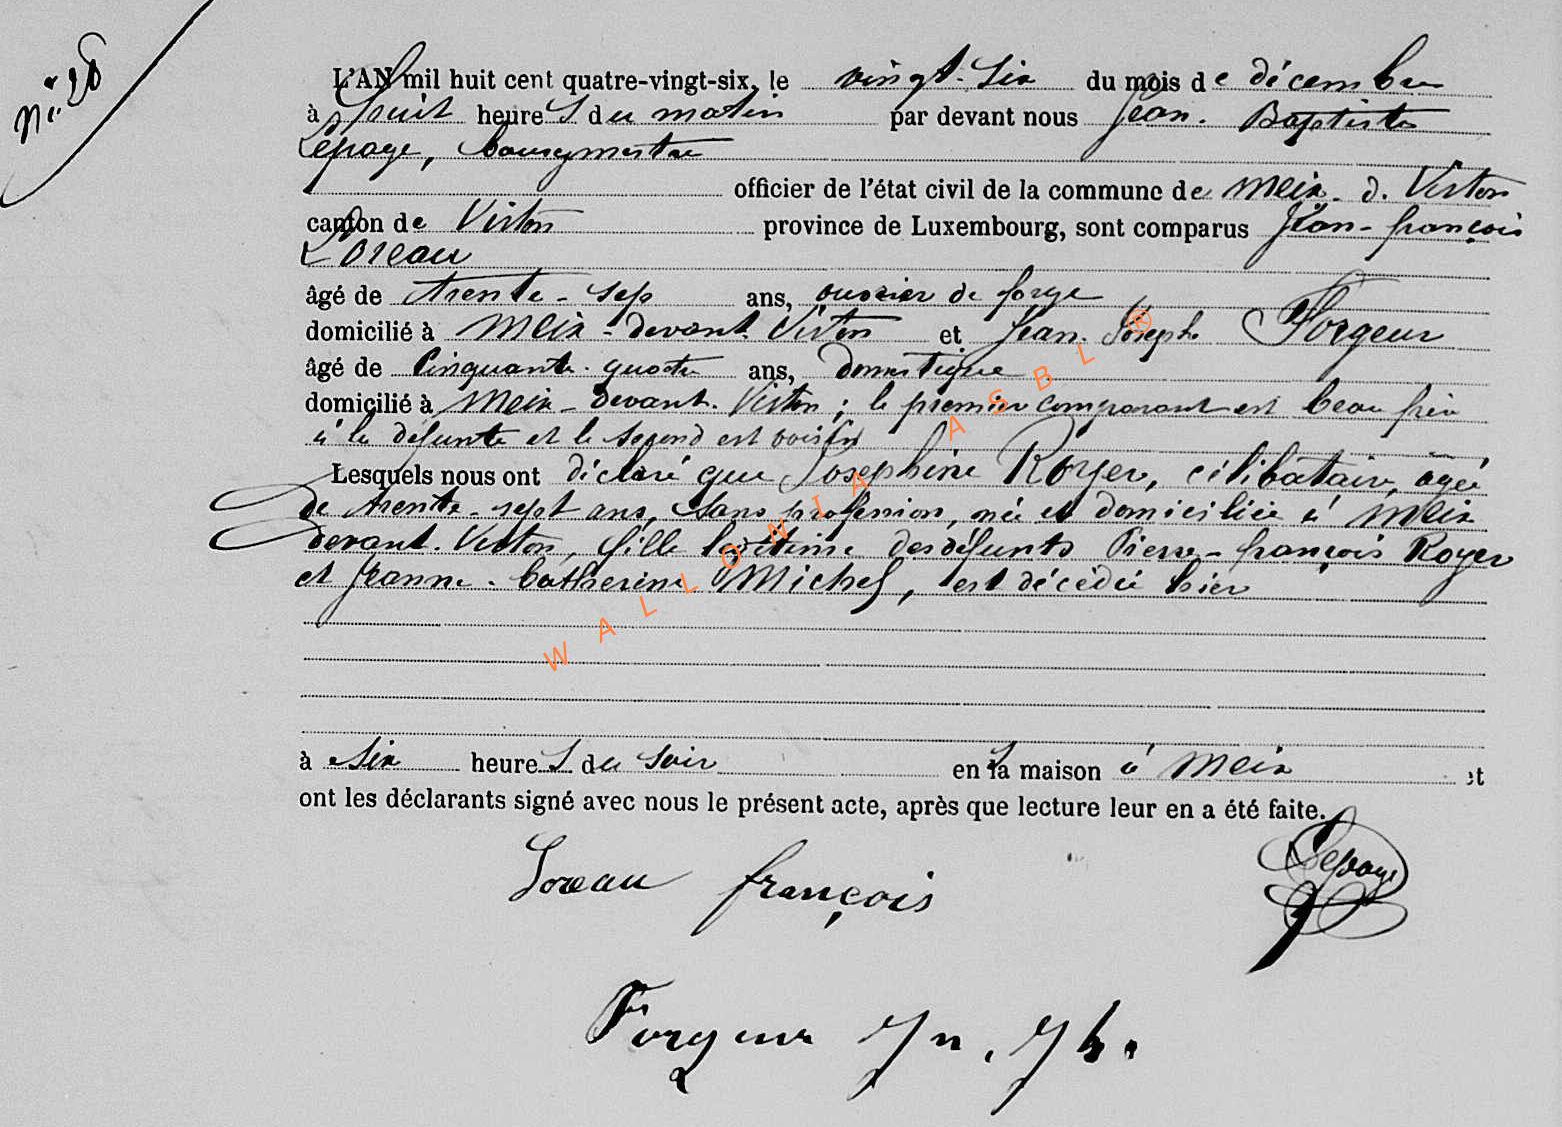 N° 28
L'AN mil huit cent quatre-vingt-six, le vingt-six du mois de décembre
à huit heures du matin par devant nous Jean-Baptiste
Lepage, bourgmestre
officier de l'état civil de la commune de Meix-d.Virton
canton de Virton province de Luxembourg, sont comparus Jean-françois
Loreau
âgé de trente-sept ans, ouvrier de forge
domicilié à Meix-devant-Virton et Jean-Joseph Forgeur
âgé de cinquante-quatre ans, domestique
domicilié à Meix-devant-Virton ; le premier comparant est beau frère
à la défunte et le second est voisin
Lesquels nous ont déclaré que Josephine Royer, célibataire, âgée
de trente-sept ans, sans profession, née et domiciliée à Meix
devant-Virton, fille légitime des défunts Pierre-françois Royer
et Jeanne-Catherine Michel, est décédée hier
à six heures du soir en sa maison à Meix et
ont les déclarants signé avec nous le présent acte, après que lecture leur en a été faite.
Lepage
Loreau françois
Forgeur Jn. Jh.
WALLONIA ASBL ®